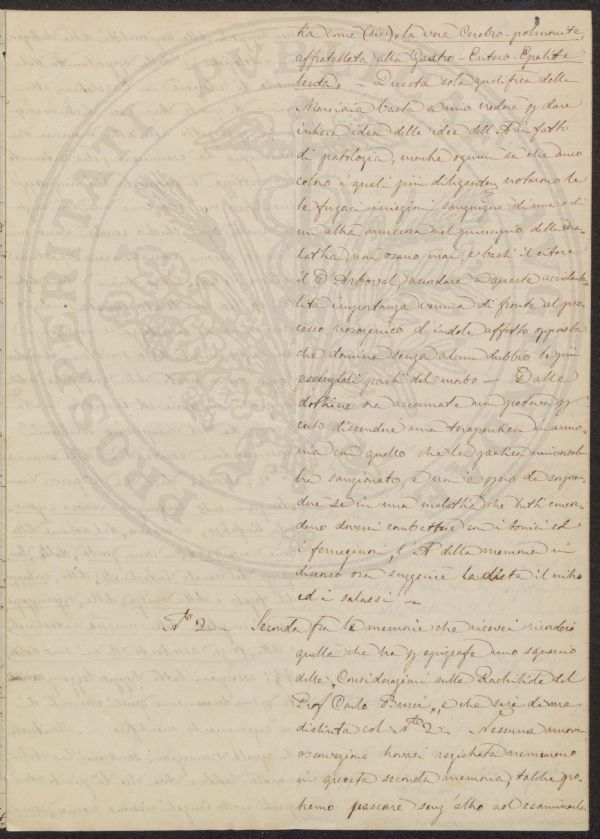 ha come (dice), la vera Cerebro-polmonite,
affratellata alla Gastro-Entero-Epatite
lenta. - Questa sola qualifica della
Marciaia basta a mio credere p dare
intera idea delle idee dell'A in fatto
di patologia, mentre ognuno sà che anco
coloro i quali più diligenten notarono le
le fugaci iniezioni sanguigne di una o di
un altra mucosa nel principio della ma
lattia, non osano mai, e basti il citare
il D'Arboval, acordare a queste accidenta
lità importanza veruna di fronte al pro
cesso nosogenico d'indole affatto opposta
che domina senza alcun dubbio le più
essenziali parti del morbo - Dalle
dottrine ora accennate non poteva p
certo discendere una terapeutica in armo
nia con quello che la pratica universale
ha sanzionato, e non è però da sorpren
dere se in una malattia che tutti concor
dano doversi combattere con i tonici ed
i ferruginosi, l'A della memoria in
discorso ora suggerisce la dieta il nitro
ed i salassi -
N° 2 - Seconda fra le memorie che ricevei ricorderò
quella che ha p epigrafe uno squarcio
delle "Considerazioni sulla Rachitide del
Prof Carlo Burci", e che sarà da me
distinta col N° 2 - Nessuna nuova
osservazione trovasi registrata nemmeno
in questa seconda memoria, talchè po
tremo passare senz'altro ad esaminarla